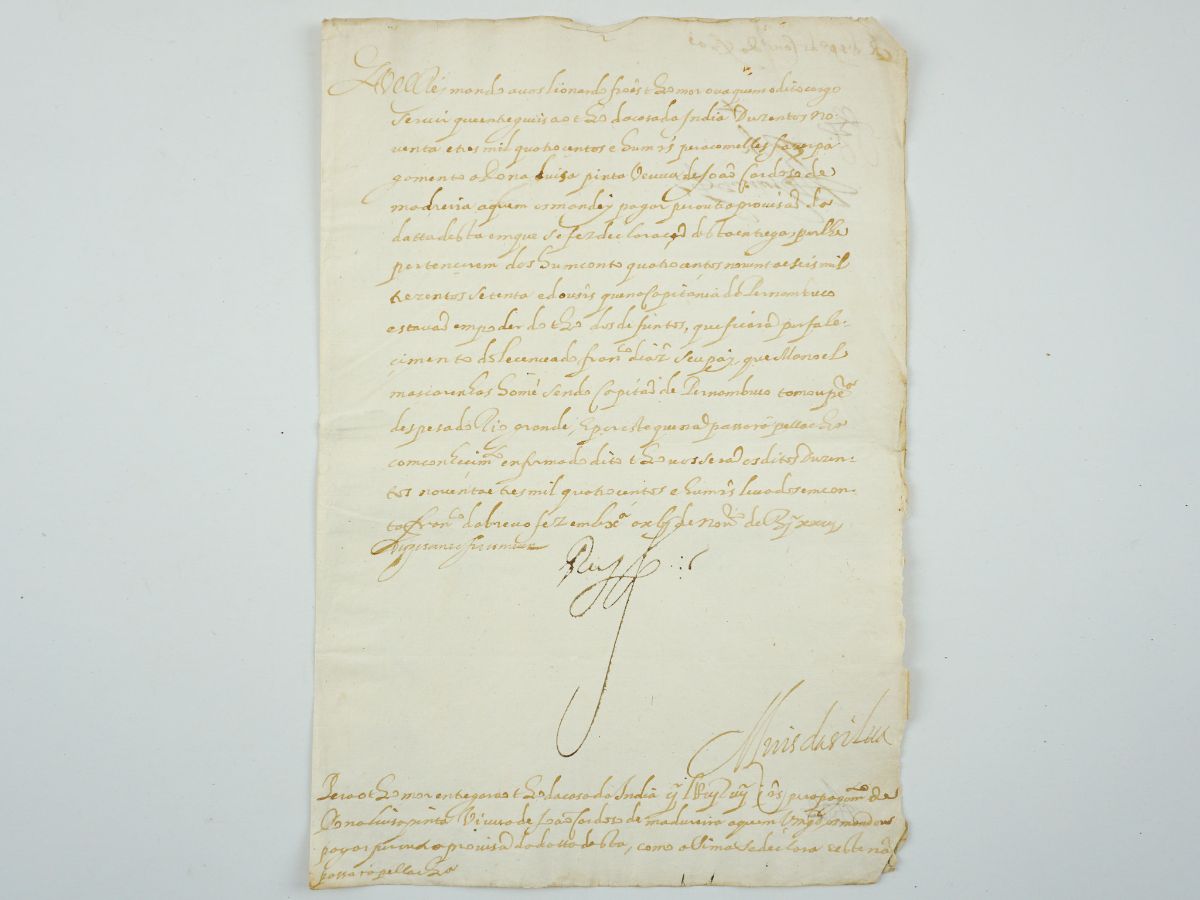 Eu el Rei mando a vos lionardo froes t ꝫo mor ou a quem o dito cargo
servir que entregueis ao t ꝫo da casa da India Duzentos no-
venta e tres mil quatrocentos e hum rs pera com elles fazer pa
gamento a dona luisa pinta Veuva de João Cardoso de
madreira a quem os mandey pagar per outra provisaõ da
datta desta em que se fez declaraçaõ desta entrega, por lhe
pertencerem dos hum conto quatrocentos noventa e seis mil
trezentos setenta e dous rs que na Capitania de Pernambuco
estavaõ em poder do t ꝫo dos defuntos, que ficaraõ per fale-
cimento do lecenceado franco diaz seu pay, que Manoel
mascarenhas home sendo Capitaõ de Pernambuco tomou pera
despesa do Rio grande, E per este que naõ passara pella chra
com conhecimto em forma do dito t ꝫo vos seraõ os ditos Duzen-
tos noventa e tres mil quatrocentos e hum rs levados em con-
ta franco dabreu o fez em lixa a de novro de
Rey
luis da silva
Pera o t ꝫo mor entregar ao t ꝫo da casa da India rs pera pagamto de
Dona luisa pinta Viuva de João Cardoso de madureira a quem V mgde os mandou
pagar per outra provisaõ da datta desta, como assima se declara e este naõ
passara pella chra